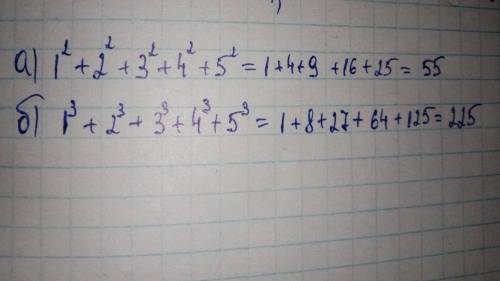 а) 1² + 2² + 3² + 4² + 5² = 1+4+9 +16+25 = 55
б) 1³ + 2³ + 3³ + 4³ + 5³ = 1+8+27+64+125=225